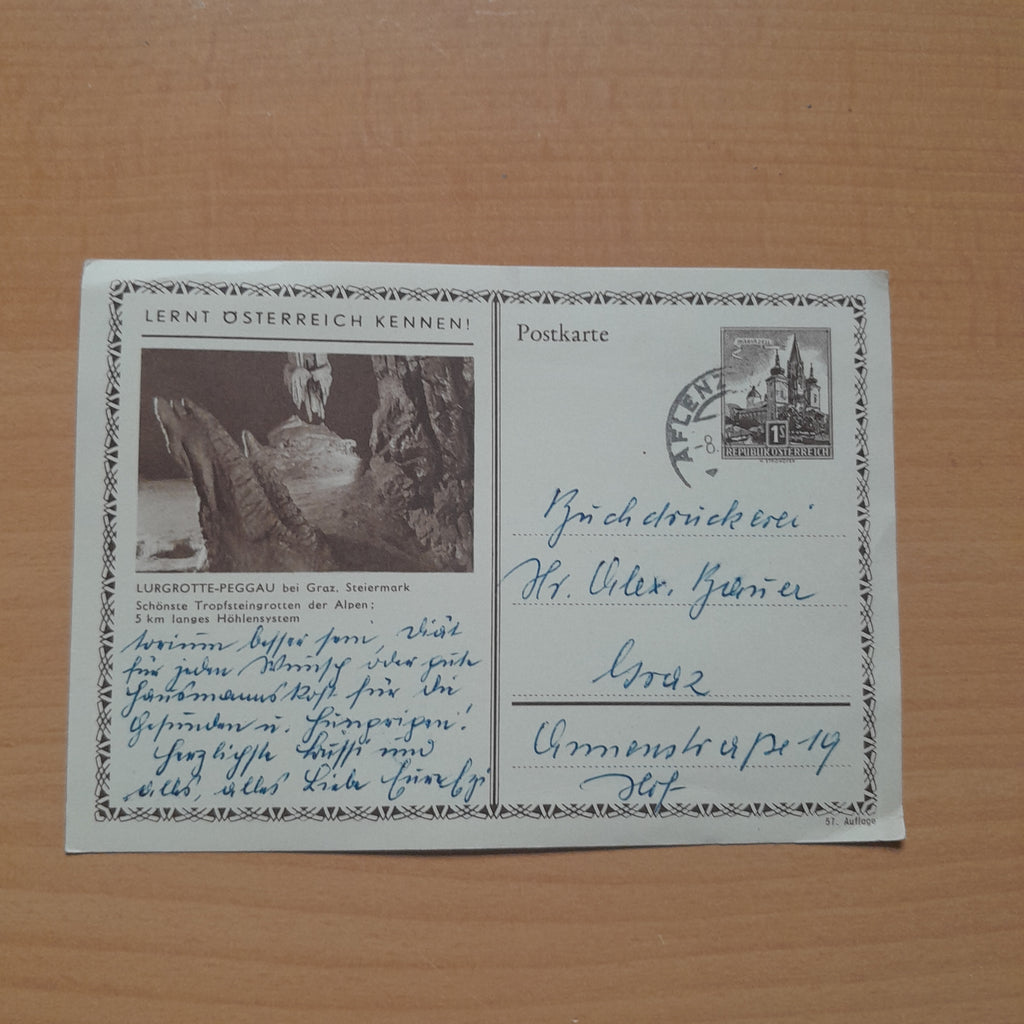 LERNT ÖSTERREICH KENNEN!
LURGROTTE-PEGGAU bei Graz, Steiermark
Schönste Tropfsteingrotten der Alpen:
5 km langes Höhlensystem
torium besser sein, Diät
für jeden Wunsch oder gute
Hausmannskost für die
Gesunden u. Hungrigen!
Herzlichste Bussi und
alles, alles Liebe Eure
Postkarte
AFLENZ
-8.
MARIAZELL
1S
REPUBLIK ÖSTERREICH
Buchdruckerei
Hr. Alex. Bauer
Graz
Annenstraße 19
Hof
57. Auflage